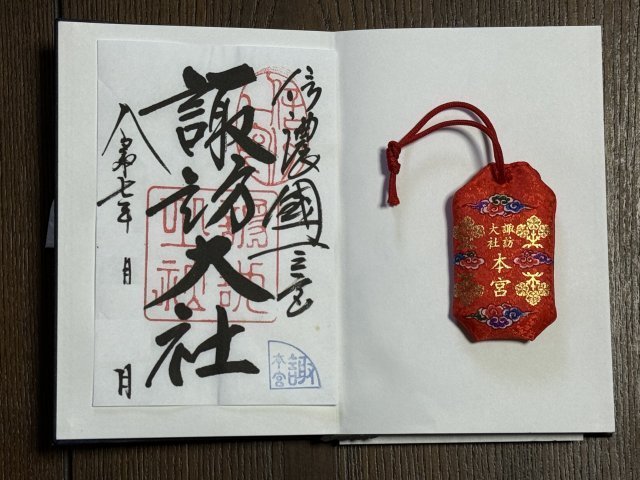 信濃國一之宮
諏訪大社
令和七年 月 日
諏
本宮
諏訪
大社
本宮